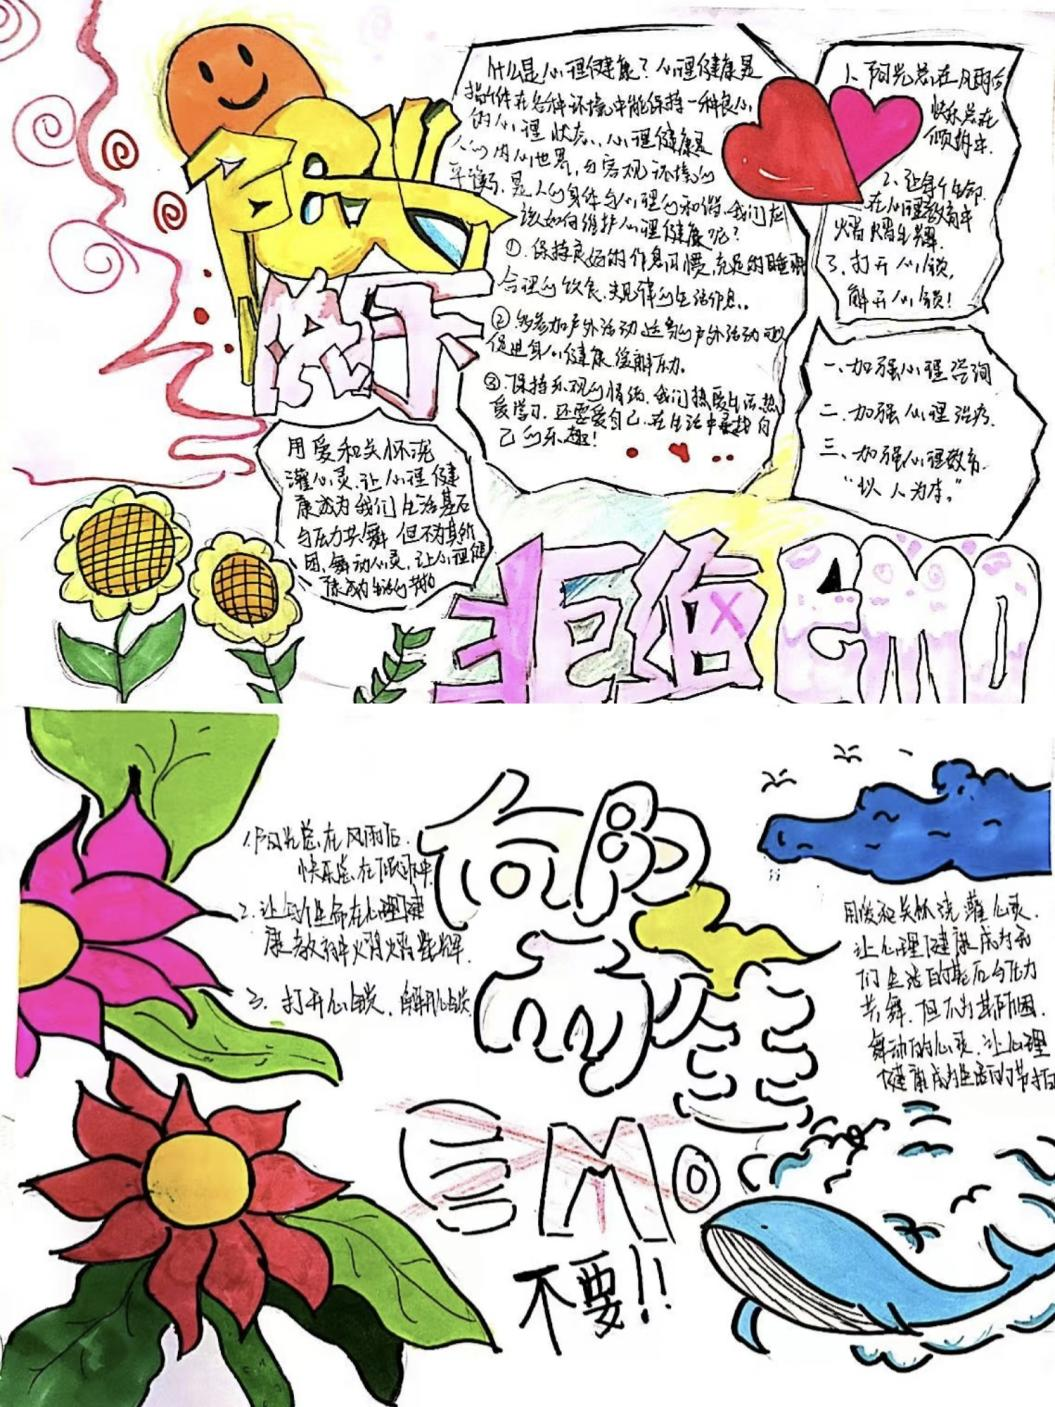 阳光
院子
什么是心理健康？心理健康是
指个体在各种环境中能保持一种良心
的心理状态，心理健康是
人的内心世界，与客观环境的
平衡，是人的身体与心理的和谐，我们应
该如何维护心理健康呢？
①保持良好的作息习惯，充足的睡眠
合理的饮食，规律的生活作息。
②多参加户外活动，适宜的户外活动
促进身心健康，缓解压力。
③保持乐观的情绪，我们热爱生活，热
爱学习，还需爱自己，在生活中寻找自
己的乐趣！
1、阳光总在风雨后
快乐总在
倾诉中.
2、让每个生命
在心理教育中
熠熠生辉.
3、打开心锁，
解开心锁！
一、加强心理咨询
二、加强心理治疗.
三、加强心理教育.
“以人为本。”
用爱和关怀浇
灌心灵，让心理健
康成为我们生活基石
与压力共舞，但不为其所
困，舞动心灵，让心理健
康成为生活的节拍
拒绝EMO
1.阳光总在风雨后.
快乐总在倾诉中.
2.让每个生命在心理健
康教育中熠熠生辉.
3.打开心锁，解开心锁.
向阳
而生
EMO
不要!!
用爱和关怀浇灌心灵.
让心理健康成为我
们生活的基石与压力
共舞，但不为其所困.
舞动的心灵，让心理
健康成为生活的节拍